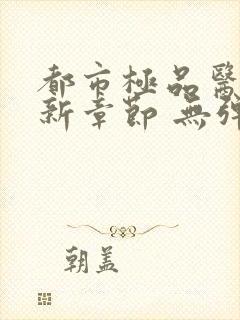 都市極品醫
新章節 無彈
朝盖